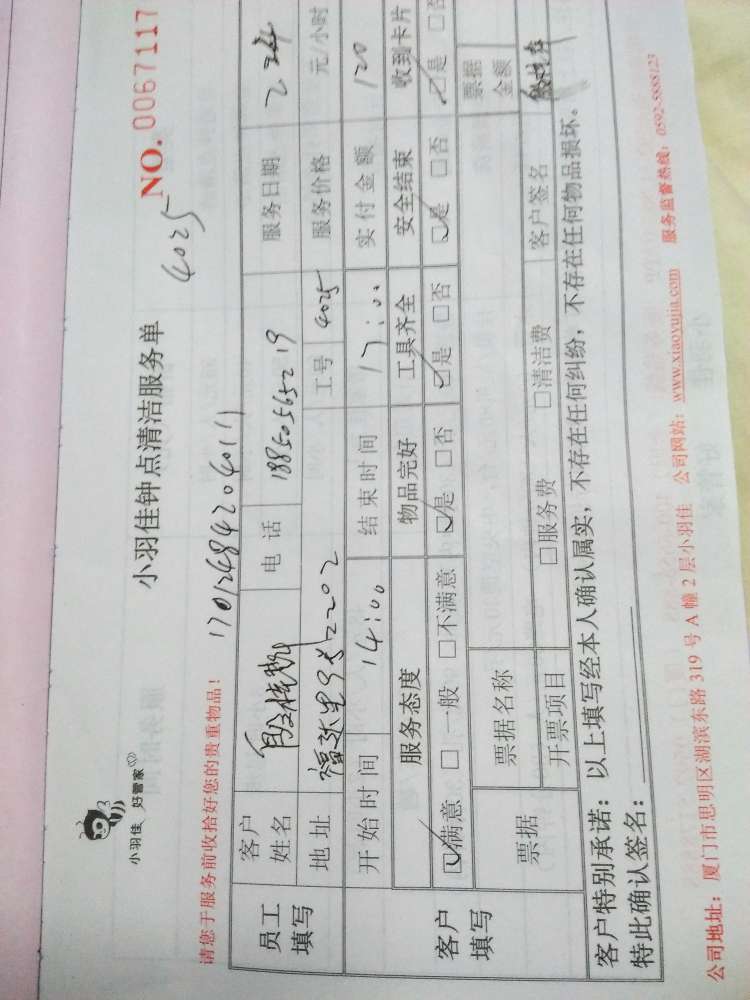 小羽佳 好管家
小羽佳钟点清洁服务单
NO. 0067117
4025
请您于服务前收拾好您的贵重物品!
员工填写
客户姓名
电话 18850565219
服务日期 2.24
地址
工号 4025
服务价格 元/小时
客户填写
开始时间 14:00
结束时间 17:00
实付金额 120
服务态度 物品完好 工具齐全 安全结束 收到卡片
☑满意 □一般 □不满意 ☑是 □否 ☑是 □否 ☑是 □否 ☑是 □否
票据
票据名称
票据金额
开票项目 □服务费 □清洁费
客户签名
客户特别承诺:以上填写经本人确认属实,不存在任何纠纷,不存在任何物品损坏。
特此确认签名:
公司地址:厦门市思明区湖滨东路 319 号 A 幢 2 层小羽佳 公司网站:www.xiaoyujia.com 服务监督热线:0592-5888123